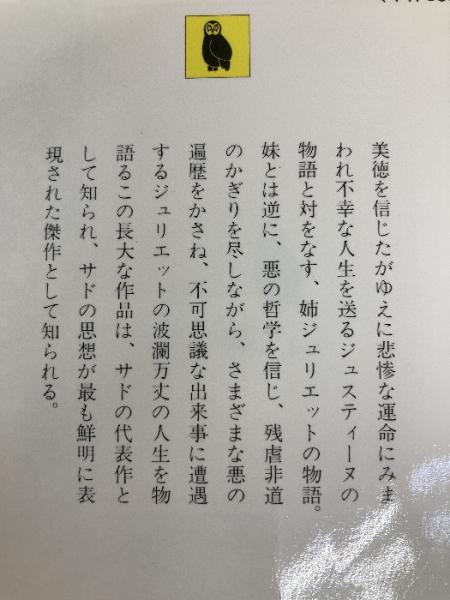 美徳を信じたがゆえに悲惨な運命にみま
われ不幸な人生を送るジュスティーヌの
物語と対をなす、姉ジュリエットの物語。
妹とは逆に、悪の哲学を信じ、残虐非道
のかぎりを尽しながら、さまざまな悪の
遍歴をかさね、不可思議な出来事に遭遇
するジュリエットの波瀾万丈の人生を物
語るこの長大な作品は、サドの代表作と
して知られ、サドの思想が最も鮮明に表
現された傑作として知られる。